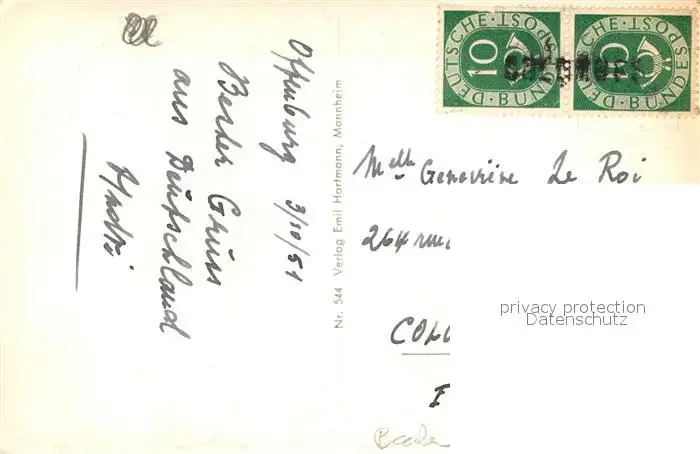 Offenburg 3/10/51
Bester Gruss
aus Deutschland
André
Nr. 544 Verlag Emil Hartmann, Mannheim
DEUTSCHE · POST · BUNDES
10
DEUTSCHE · POST · BUNDES
Melle Geneviève Le Roi
264 rue
COL
privacy protection
Datenschutz